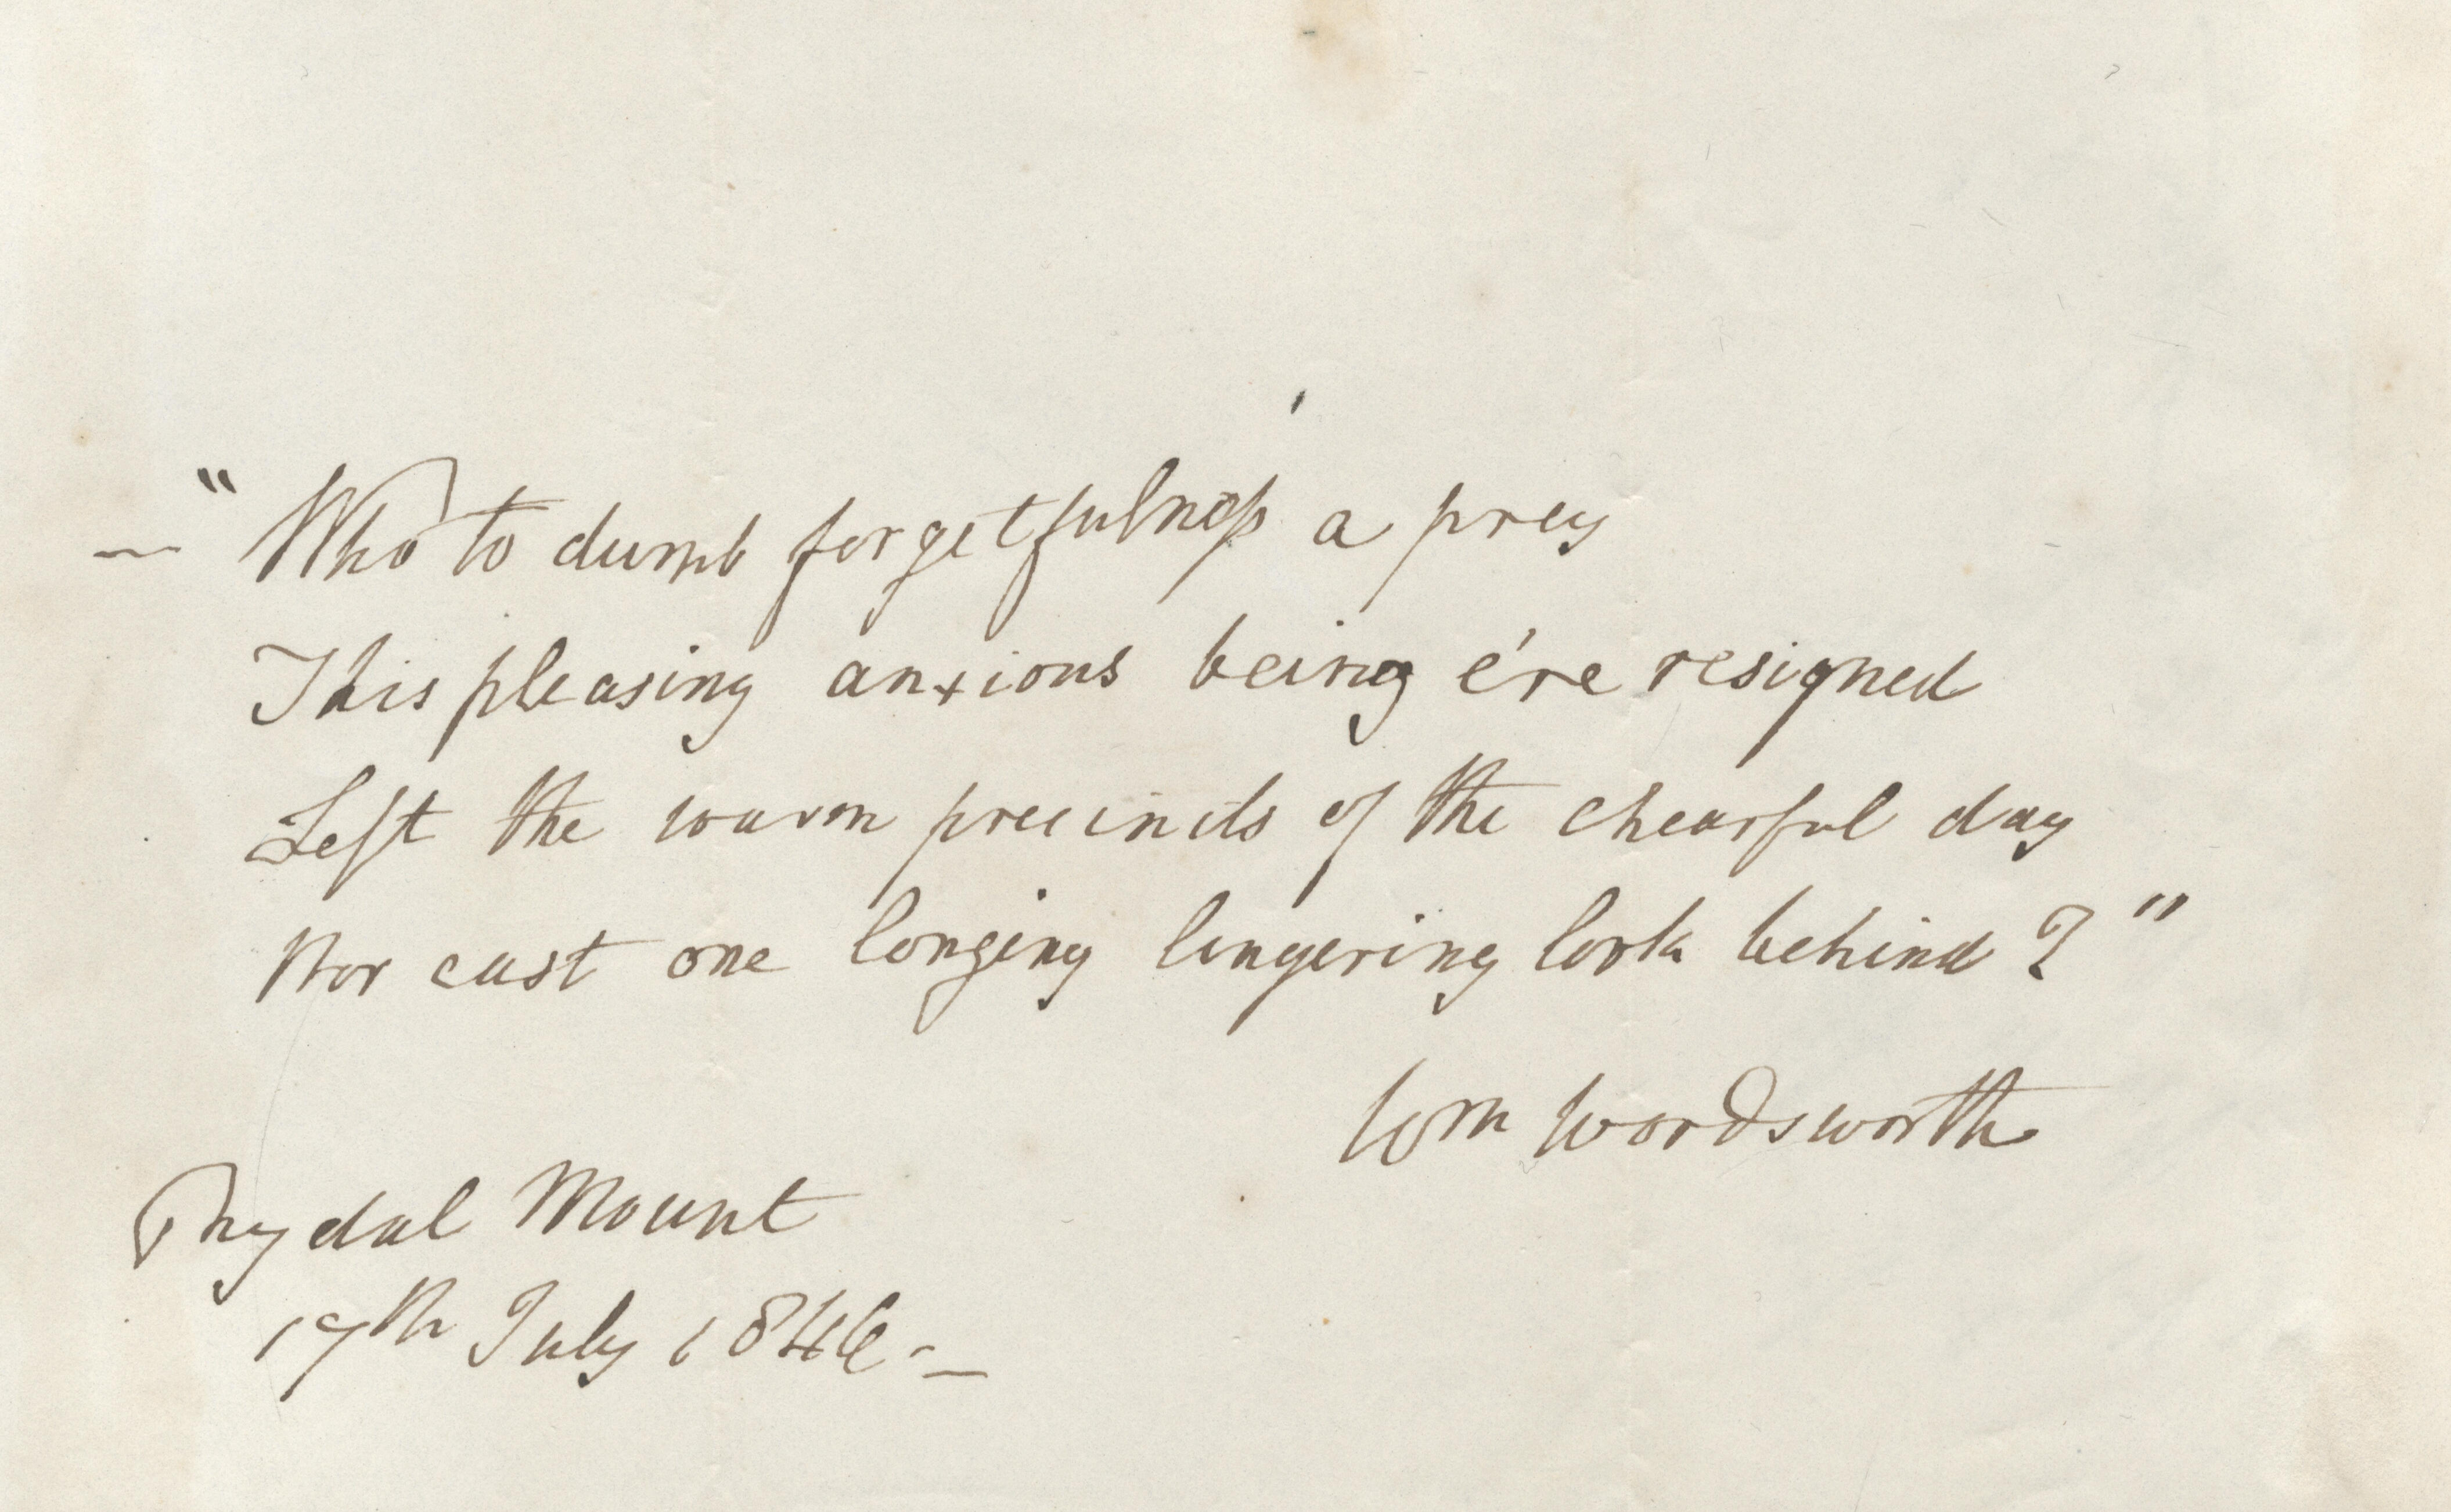 — "Who to dumb forgetfulness a prey
This pleasing anxious being e're resigned
Left the warm precincts of the chearful day
Nor cast one longing lingering look behind?"
Wm Wordsworth
Rydal Mount
17th July 1846 —